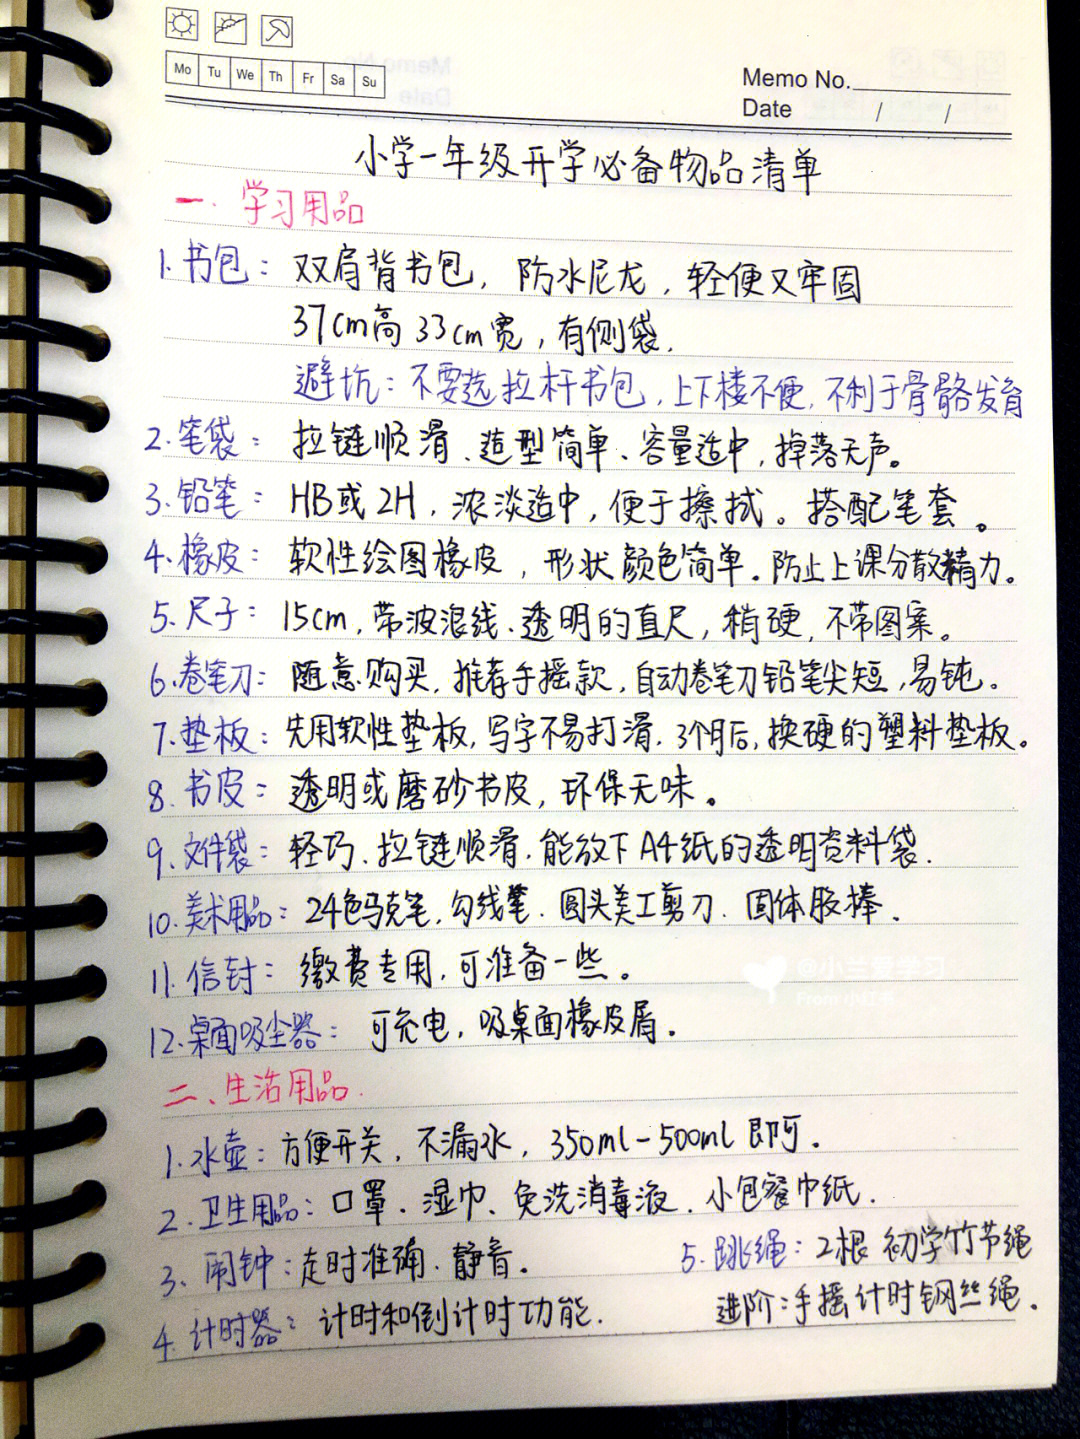 Mo Tu We Th Fr Sa Su
Memo No.
Date / /
小学一年级开学必备物品清单
一. 学习用品
1.书包：双肩背书包，防水尼龙，轻便又牢固
37cm高 33cm宽，有侧袋.
避坑：不要选拉杆书包，上下楼不便,不利于骨骼发育
2.笔袋：拉链顺滑、造型简单、容量适中，掉落无声。
3.铅笔：HB或2H，浓淡适中，便于擦拭。搭配笔套。
4.橡皮：软性绘图橡皮，形状颜色简单.防止上课分散精力。
5.尺子：15cm,带波浪线、透明的直尺，稍硬，不带图案。
6.卷笔刀：随意购买，推荐手摇款，自动卷笔刀铅笔尖短，易钝。
7.垫板：先用软性垫板,写字不易打滑.3个月后,换硬的塑料垫板。
8.书皮：透明或磨砂书皮，环保无味。
9.文件袋：轻巧、拉链顺滑.能放下A4纸的透明资料袋.
10.美术用品：24色马克笔,勾线笔.圆头美工剪刀.固体胶棒.
11.信封：缴费专用,可准备一些。
12.桌面吸尘器：可充电，吸桌面橡皮屑.
@小兰爱学习
From 小红书
二、生活用品.
1.水壶：方便开关，不漏水，350ml-500ml即可.
2.卫生用品：口罩.湿巾、免洗消毒液.小包餐巾纸.
3.闹钟：走时准确.静音.
4.计时器：计时和倒计时功能.
5.跳绳：2根 初学竹节绳
进阶：手摇计时钢丝绳.